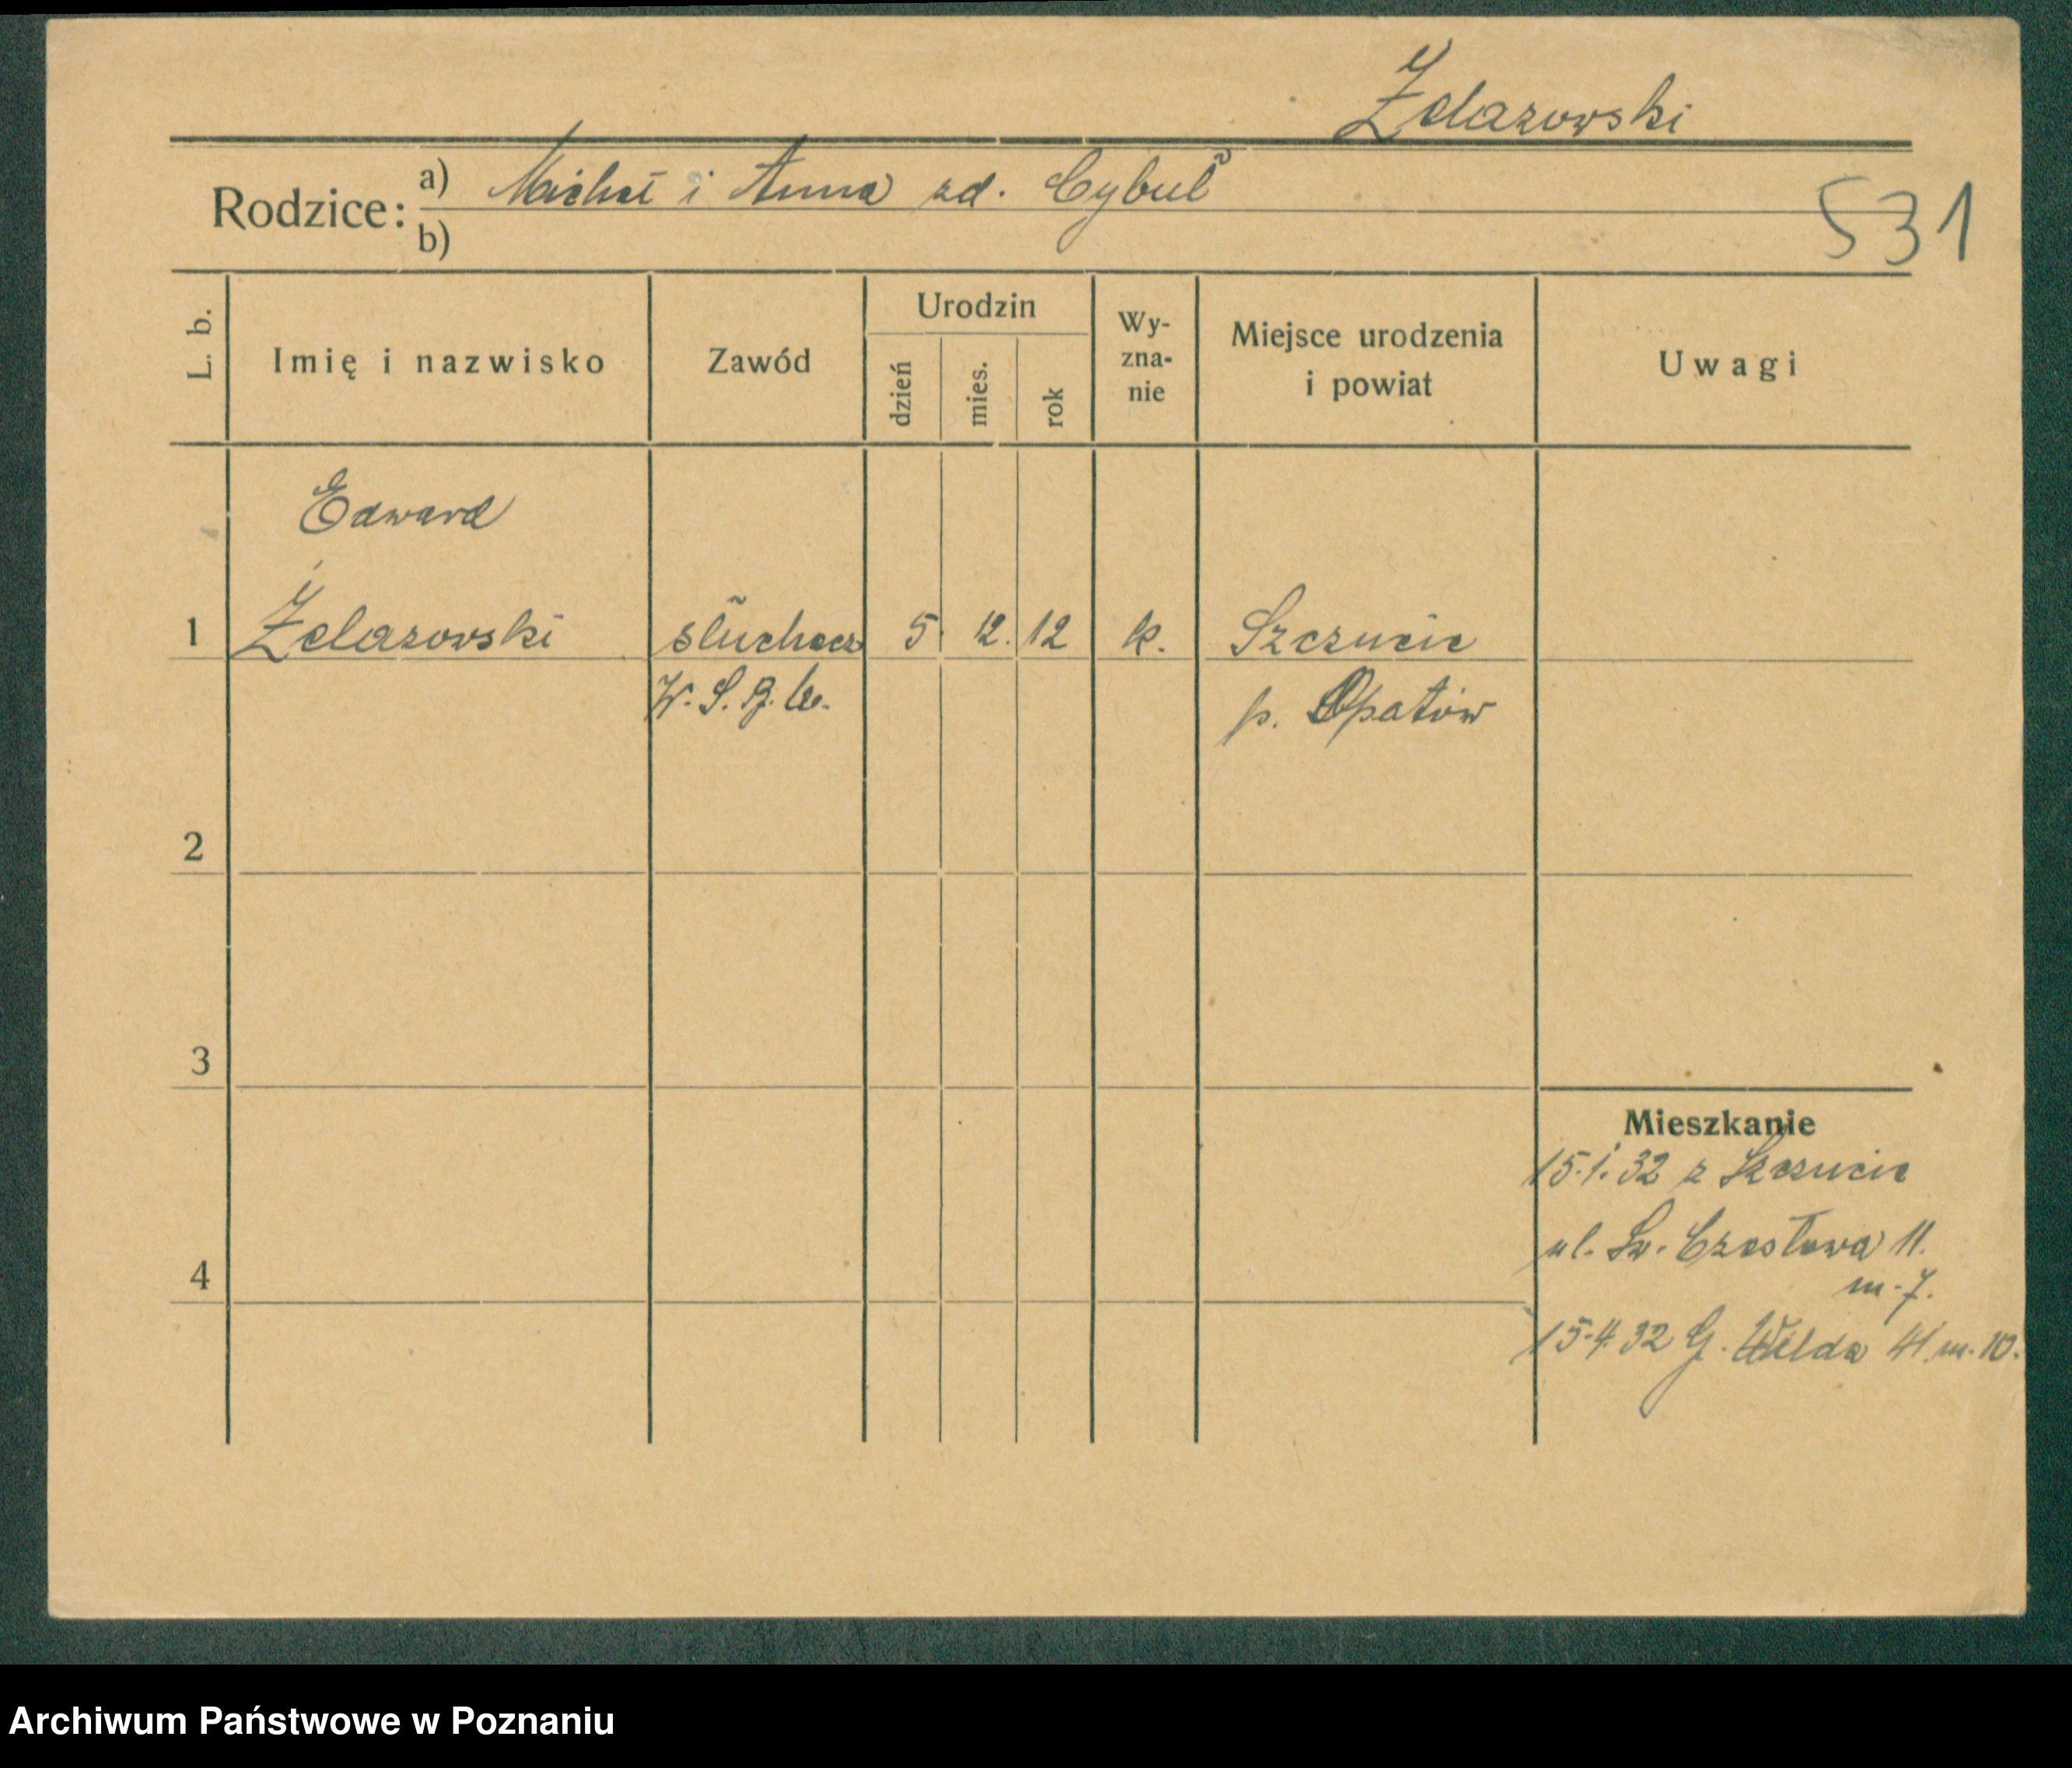 Żelazowski
Rodzice: a) Michał i Anna zd. Cybuł
b)
531
L. b. Imię i nazwisko Zawód Urodzin dzień mies. rok Wy-zna-nie Miejsce urodzenia i powiat Uwagi
Edward
1 Żelazowski słuchacz 5. 12. 12 k. Szczucie
W. S. B. p. Opatów
2
3
Mieszkanie
15.1.32 z Szczucie
ul. Św. Czesława 11.
m. 7.
4
15.4.32 G. Wilda 41 m. 10.
Archiwum Państwowe w Poznaniu